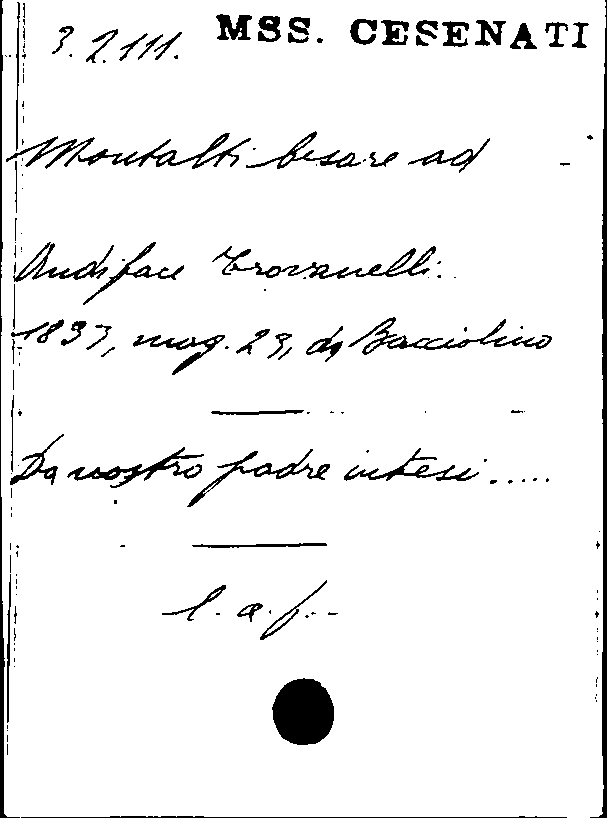 3.2.111. MSS. CESENATI
Montalti Cesare ad
Audiface Trovanelli.
1837, mag. 23, da Bacciolino
Da vostro padre intesi.....
l. a. f.